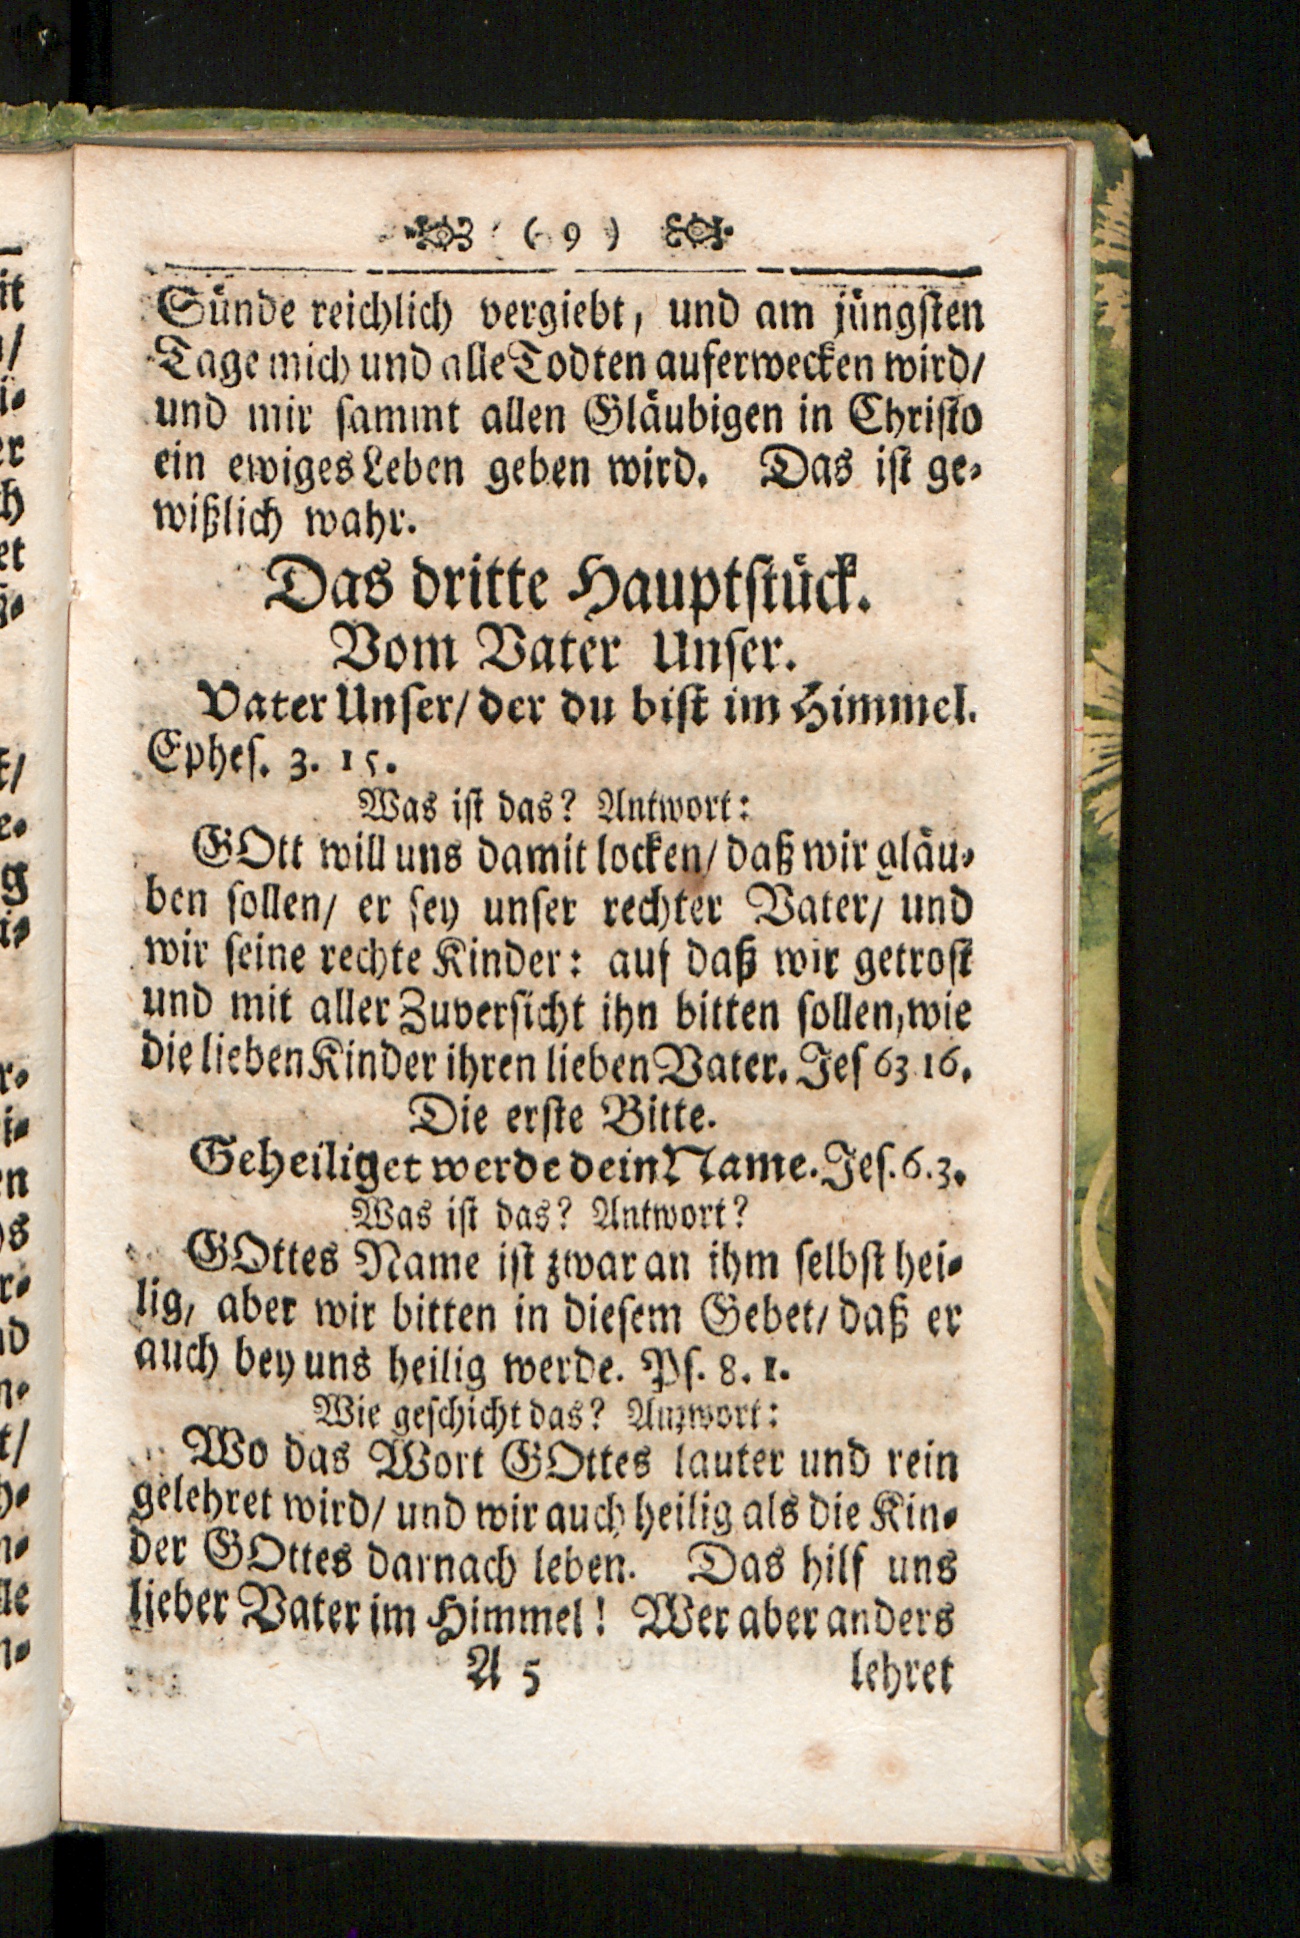 ( 9 )
Sünde reichlich vergiebt, und am jüngsten
Tage mich und alle Todten auferwecken wird/
und mir sammt allen Gläubigen in Christo
ein ewiges Leben geben wird. Das ist ge-
wißlich wahr.
Das dritte Hauptstück.
Vom Vater Unser.
Vater Unser/ der du bist im Himmel.
Ephes. 3. 15.
Was ist das? Antwort:
GOtt will uns damit locken/ daß wir gläu-
ben sollen/ er sey unser rechter Vater/ und
wir seine rechte Kinder: auf daß wir getrost
und mit aller Zuversicht ihn bitten sollen, wie
die lieben Kinder ihren lieben Vater. Jes 63 16.
Die erste Bitte.
Geheiliget werde dein Name. Jes. 6. 3.
Was ist das? Antwort?
GOttes Name ist zwar an ihm selbst hei-
lig, aber wir bitten in diesem Gebet/ daß er
auch bey uns heilig werde. Ps. 8. 1.
Wie geschicht das? Anzwort:
Wo das Wort GOttes lauter und rein
gelehret wird/ und wir auch heilig als die Kin-
der GOttes darnach leben. Das hilf uns
lieber Vater im Himmel! Wer aber anders
A 5 lehret